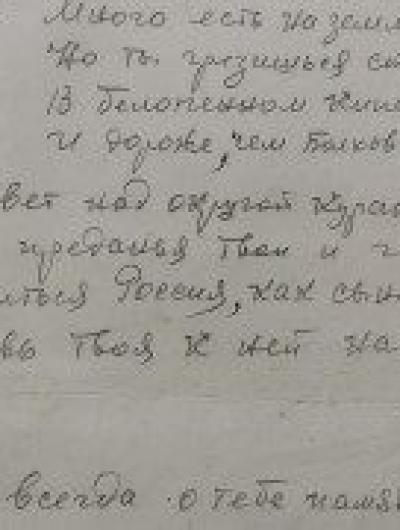 Много есть на земл
Но ты грезишься с
В белопенном кипе
И дороже, чем Волхов
вет над округой
преданья Твои и
иться Россия, как сын
вь Твоя к ней на
всегда о тебе памя